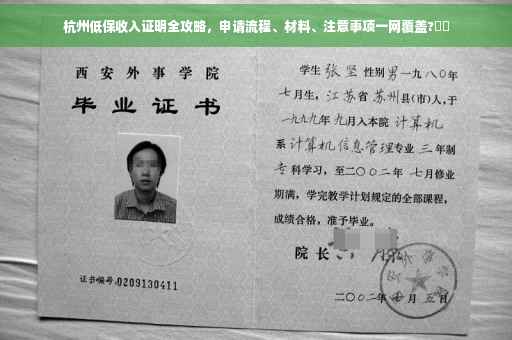 杭州低保收入证明全攻略，申请流程、材料、注意事项一网覆盖?
西安外事学院
毕业证书
证书编号:0209130411
学生张坚性别男一九八〇年
七月生，江苏省苏州县(市)人，于
一九九九年九月入本院计算机
系计算机信息管理专业三年制
专科学习，至二〇〇二年七月修业
期满，学完教学计划规定的全部课程，
成绩合格，准予毕业。
院长
二〇〇二年 月五日